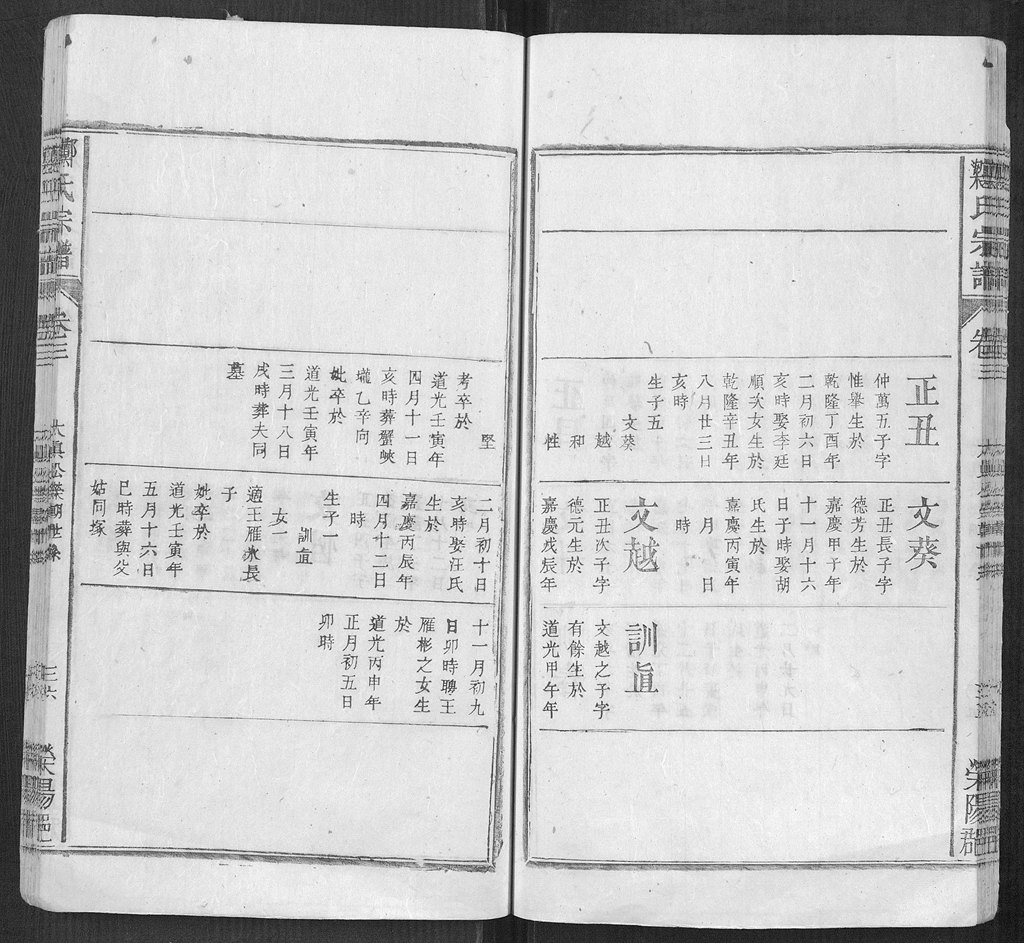 正丑
仲萬五子字
惟舉生於
乾隆丁酉年
二月初六日
亥時娶李廷
順次女生於
乾隆辛丑年
八月廿三日
亥時
生子五
文葵
越
和
牲
堅
考卒於
道光壬寅年
四月十一日
亥時葬蟹峽
壠乙辛向
妣卒於
道光壬寅年
三月十八日
戌時葬夫同
墓
文葵
正丑長子字
德芳生於
嘉慶甲子年
十一月十六
日子時娶胡
氏生於
嘉慶丙寅年
月 日
時
文越
正丑次子字
德元生於
嘉慶戊辰年
二月初十日
亥時娶汪氏
生於
嘉慶丙辰年
四月十二日
時
生子一
訓直
女一
適王雁水長
子
妣卒於
道光壬寅年
五月十六日
巳時葬與父
姑同塚
訓直
文越之子字
有餘生於
道光甲午年
十一月初九
日卯時聘王
雁彬之女生
於
道光丙申年
正月初五日
卯時
氏宗譜
卷三
鄭氏宗譜
卷三
三六